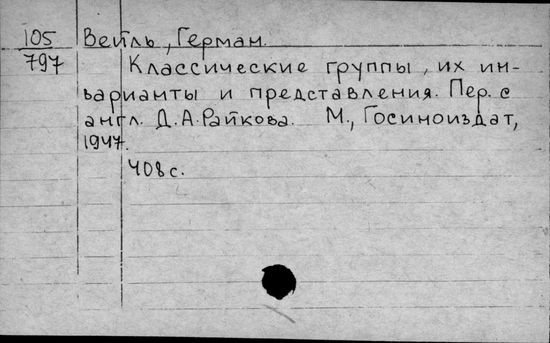 105 Вейль, Герман.
797 Классические группы, их ин-
варианты и представления. Пер. с
англ. Д.А.Райкова. М., Госиноиздат,
1947.
408 с.